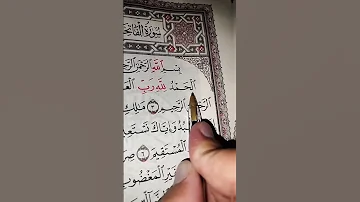 سُورَةُ الْفَاتِحَ
بِسْمِ اللَّهِ الرَّحْمَٰنِ الرَّ
الْحَمْدُ لِلَّهِ رَبِّ الْعَ
الرَّحِيمِ ٣ مَٰلِكِ
وَإِيَّاكَ نَسْتَعِ
الْمُسْتَقِيمَ ٦ صِرَ
غَيْرِ الْمَغْضُوبِ